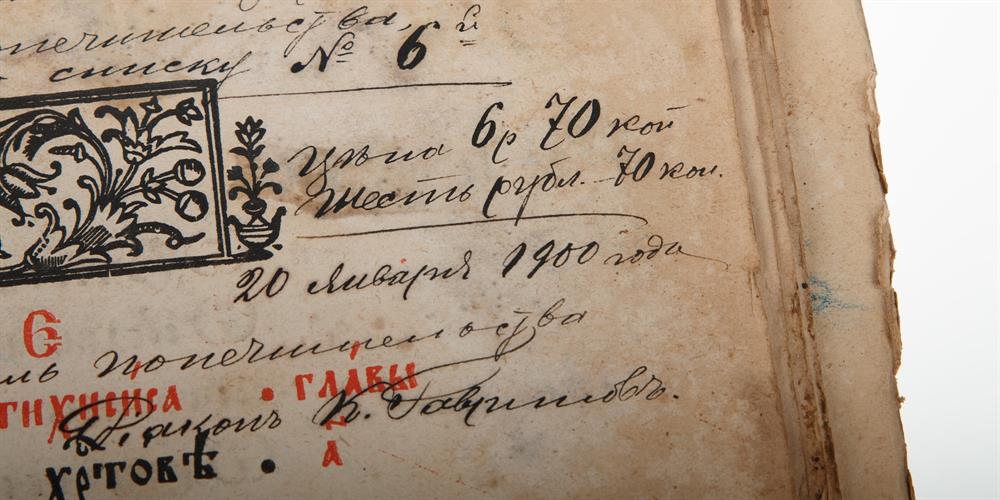 попечительства
списку № 6й
Цѣна 6р 70 коп
Шесть рубл. 70 коп.
20 января 1900 года
попечительства
Дьяконъ К. Гавриловъ.
. ГЛАВЫ
ХРТОВѢ . А